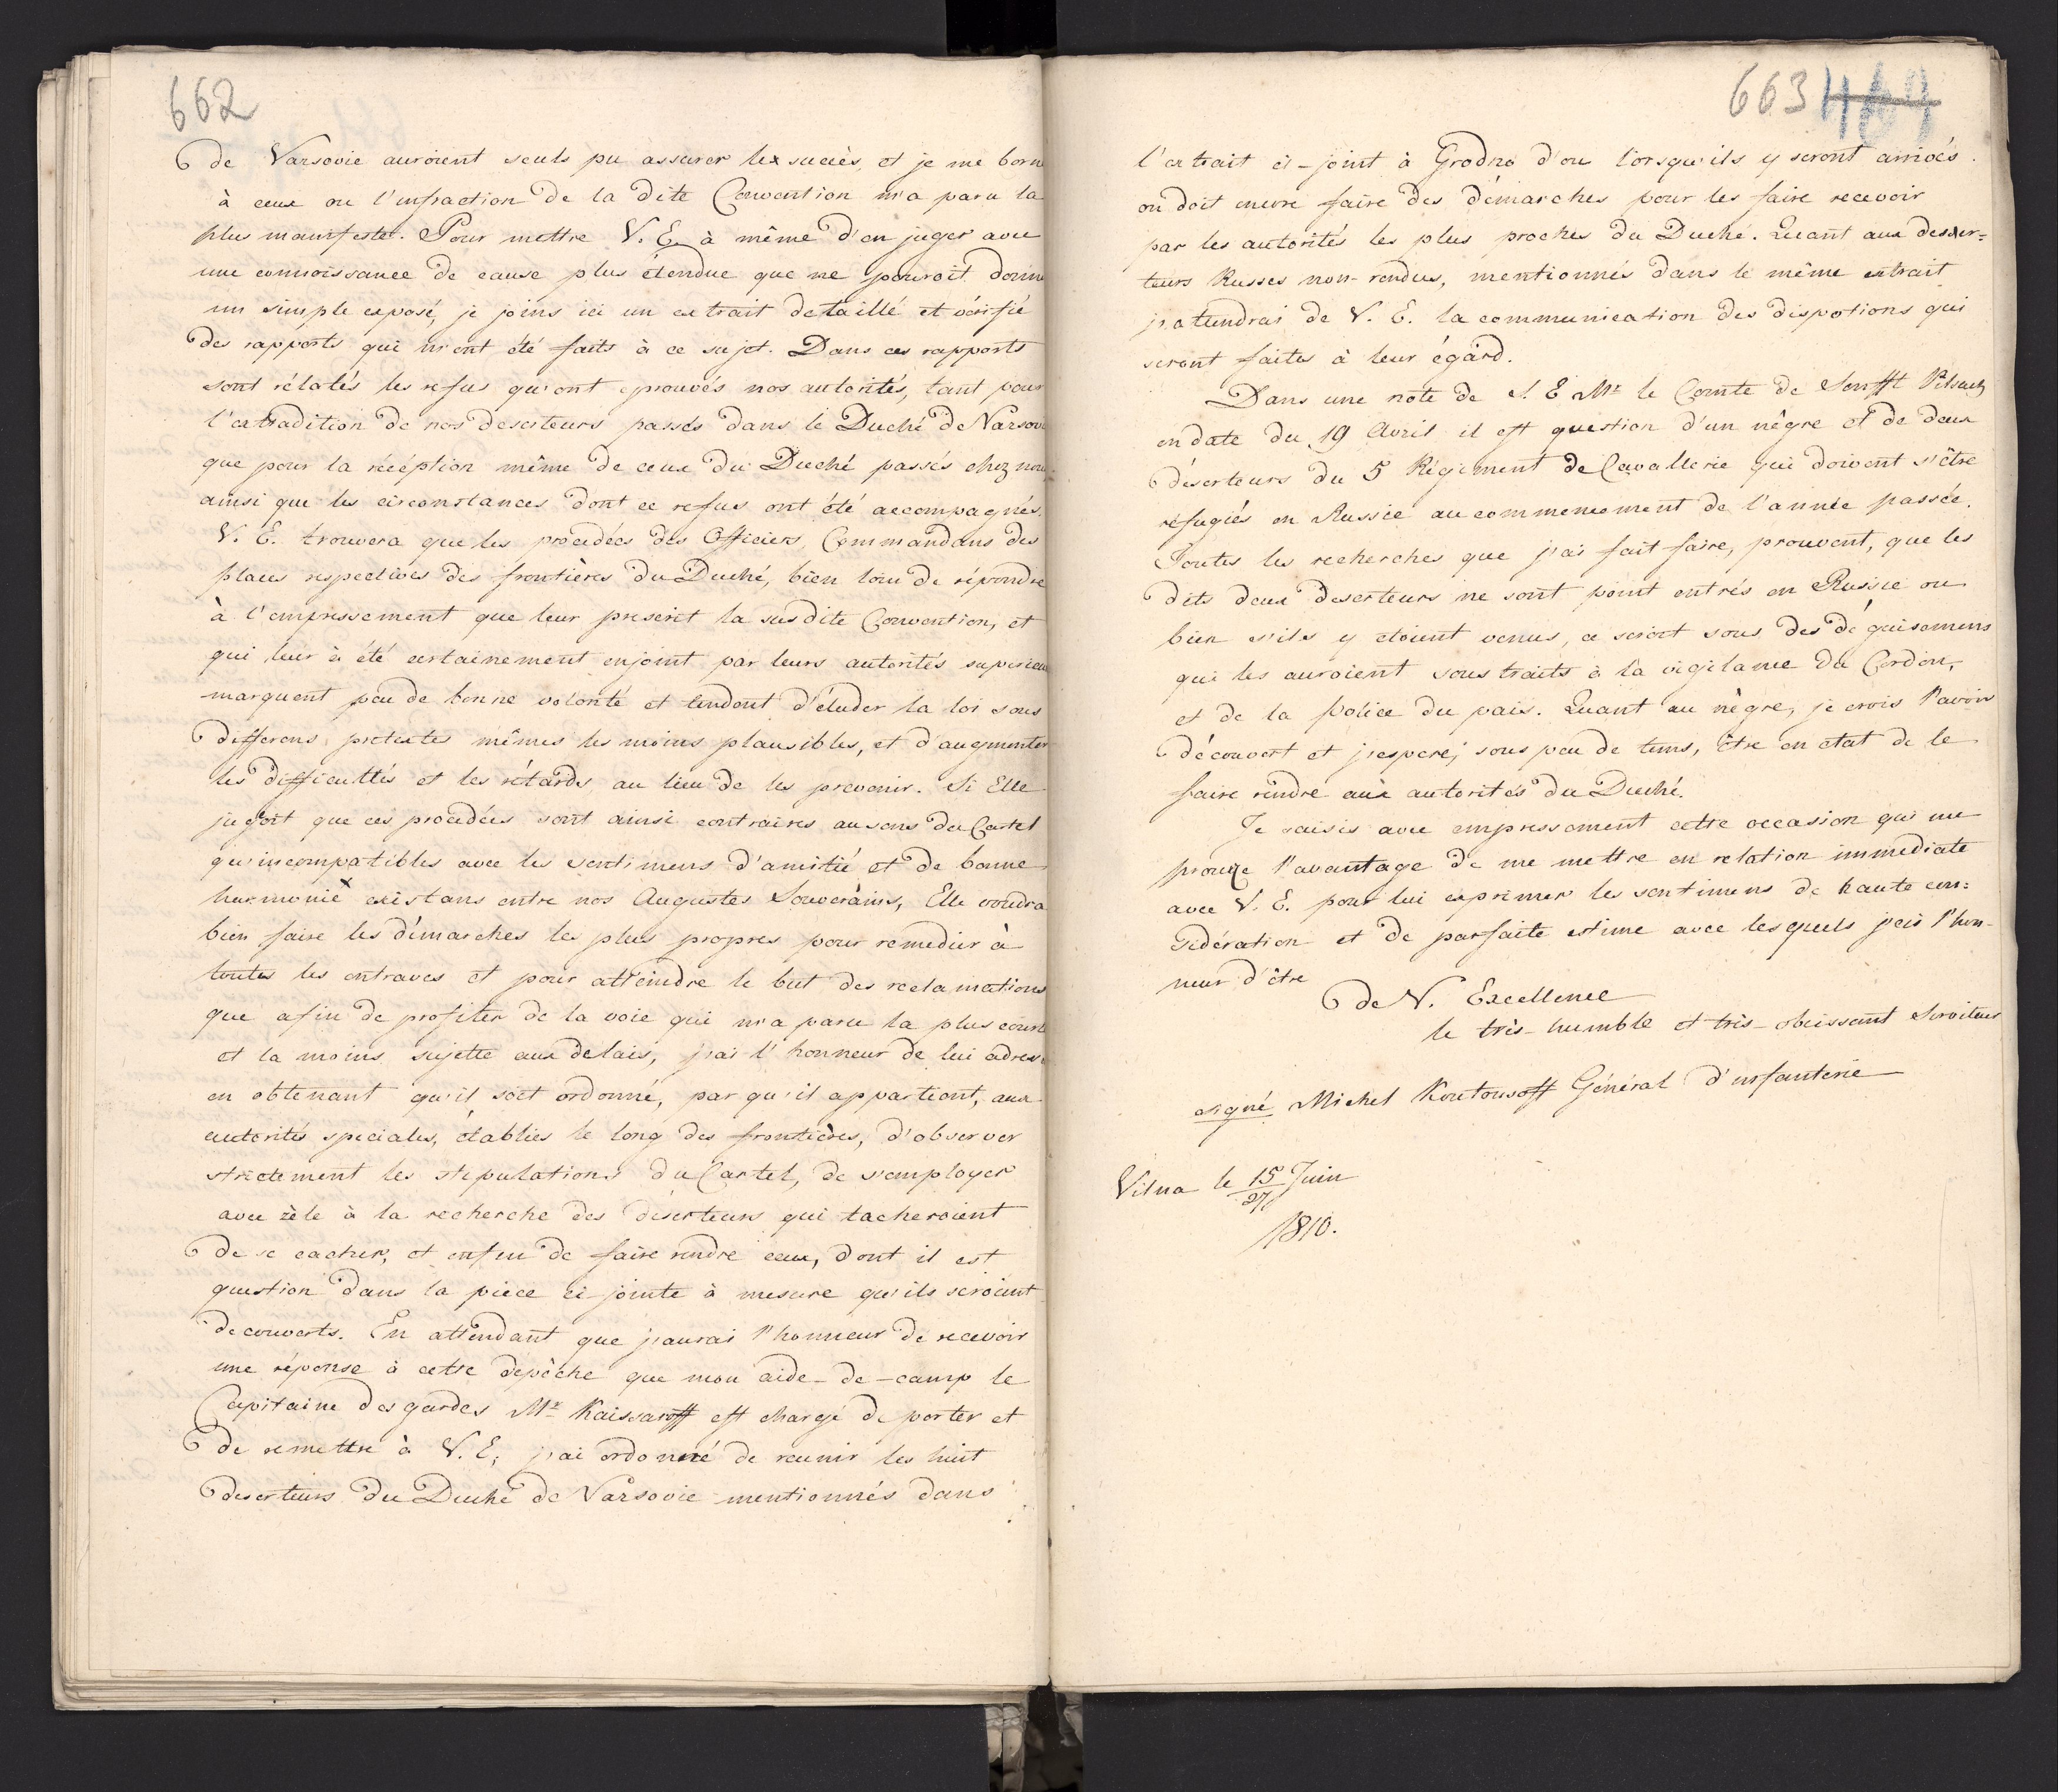 662
de Varsovie auroient seuls pu assurer lex succès, et je me born
à ceux ou l'infraction de la dite Convention m'a paru la
plus manifeste. Pour mettre V. E. à même d'en juger avec
une connoissance de cause plus étendue que ne pouroit donn
un simple exposé, je joins ici un extrait detaillé et vérifié
des rapports qui m'ont été faits à ce sujet. Dans ces rapports
sont rélatés les refus qu'ont eprouvés nos autorités, tant pour
l'extradition de nos deserteurs passés dans le Duché de Varsovi
que pour la récéption même de ceux du Duché passés chez nou
ainsi que les circonstances dont ce refus ont été accompagnés.
V. E. trouvera que les procédées des Officiers, Commandans des
places respectives des frontières du Duché, bien loin de répondre
à l'empressement que leur prescrit la susdite Convention, et
qui leur à été certainement enjoint par leurs autorités superieu
marquent peu de bonne volonté et tendent d'éluder la loi sous
differens pretextes mêmes les moins plausibles, et d'augmenter
les difficultés et les rétards au lieu de les prevenir. Si Elle
jugoit que ces procédées sont ainsi contraires au sens du Cartel
qu'incompatibles avec les sentimens d'amitié et de bonne
harmonie existans entre nos Augustes Souverains, Elle voudra
bien faire les démarches les plus propres pour remedier à
toutes les entraves et pour atteindre le but des reclamations
que afin de profiter de la voie qui m'a paru la plus court
et la moins sujette aux delais, j'ai l'honneur de lui adress
en obtenant qu'il soit ordonné, par qu'il appartient, aux
autorités speciales, établies le long des frontières, d'observer
strictement les stipulations du Cartel, de s'employer
avec zèle à la recherche des déserteurs qui tacheroient
de se cacher, et enfin de faire rendre ceux, dont il est
question dans la pièce ci-jointe à mesure qu'ils seroient
decouverts. En attendant que j'aurai l'honneur de recevoir
une réponse à cette dépèche que mon aide-de-camp le
Capitaine des gardes Mr Kaissaroff est chargé de porter et
de remettre à V. E; j'ai ordonné de reunir les huit
deserteurs du Duché de Varsovie mentionnés dans
663 469
l'extrait ci-joint à Grodno d'ou lorsqu'ils y seront arrivés.
on doit encore faire des démarches pour les faire recevoir
par les autorités les plus proches du Duché. Quant aux deser=
teurs Russes non-rendus, mentionnés dans le même extrait
j'attendrai de V. E. la communication des dispotions qui
seront faites à leur égard.
Dans une note de S E Mr le Comte de Senfft Pilsach
en date du 19 Avril il est question d'un nègre et de deux
déserteurs du 5 Régiment de Cavallerie qui doivent s'être
réfugiés en Russie au commencement de l'année passée.
Toutes les recherches que j'ai fait faire, prouvent, que les
dits deux deserteurs ne sont point entrés en Russie ou
bien s'ils y etoient venus, ce seroit sous des déguisemens
qui les auroient soustraits à la vigilance du Cordon,
et de la police du païs. Quant au nègre, je crois l'avoir
découvert et j'espere, sous peu de tems, être en etat de le
faire rendre aux autorités du Duché.
Je saisis avec empressement cette occasion qui me
procure l'avantage de me mettre en relation immediate
avec V. E. pour lui exprimer les sentimens de haute con=
sidération et de parfaite estime avec lesquels j'ai l'hon-
neur d'être
de V. Excellence
le très-humble et très-obeissant Serviteur
signé Michel Koutousoff Général d'infanterie
Vilna le 15/27 Juin
1810.